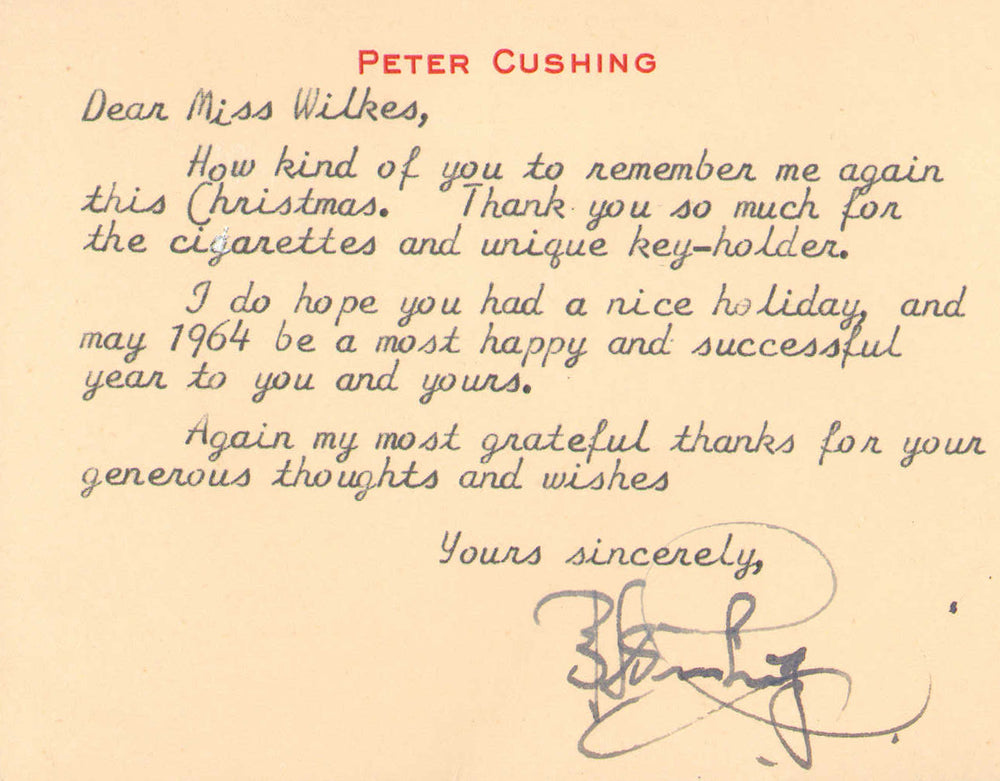 PETER CUSHING
Dear Miss Wilkes,
How kind of you to remember me again
this Christmas. Thank you so much for
the cigarettes and unique key-holder.
I do hope you had a nice holiday, and
may 1964 be a most happy and successful
year to you and yours.
Again my most grateful thanks for your
generous thoughts and wishes
Yours sincerely,